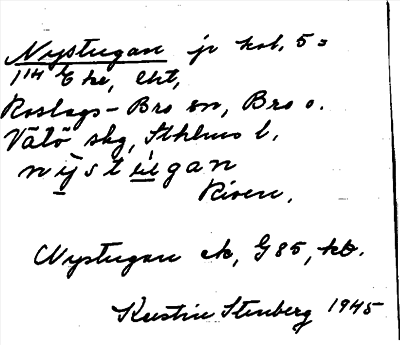 Nystugan jr kol. 50
1/4 Eke, cht,
Roslags-Bro sn, Bro o.
Vätö skg, Sthlms l.
nystugan
Riven.
Nystugan ek, G85, kb.
Kerstin Stenberg 1945